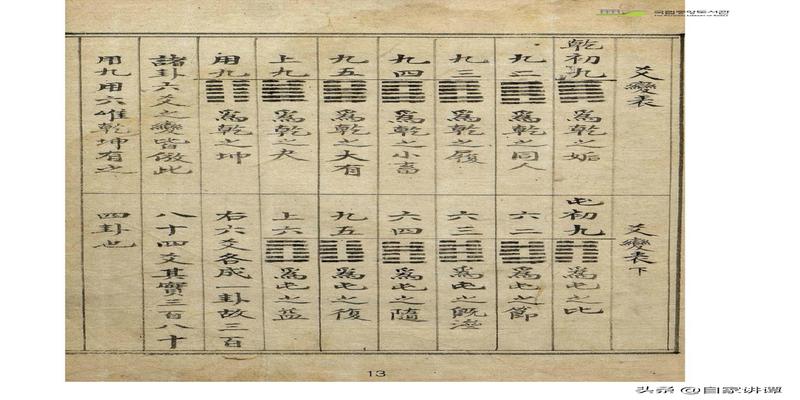 국립중앙도서관
The National Library of Korea
爻變表
乾初九 爲乾之姤
九二 爲乾之同人
九三 爲乾之履
九四 爲乾之小畜
九五 爲乾之大有
上九 爲乾之夬
用九 爲乾之坤
諸卦六爻之變皆倣此
用九用六惟乾坤有之
爻變表下
屯初九 爲屯之比
六二 爲屯之節
六三 爲屯之旣濟
六四 爲屯之隨
九五 爲屯之復
上六 爲屯之益
右六爻各成一卦故三百
八十四爻其實三百八十
四卦也
13
头条 @自家讲谭